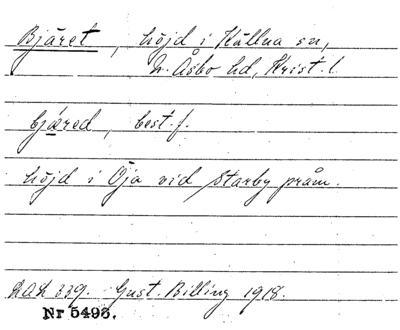 Bjäret, höjd i Källna sn,
N. Åsbo hd, Krist. l.
bjæred, best. f.
höjd i Öja vid Starby präm.
LAL 339. Gust. Billing 1918.
Nr 5496.